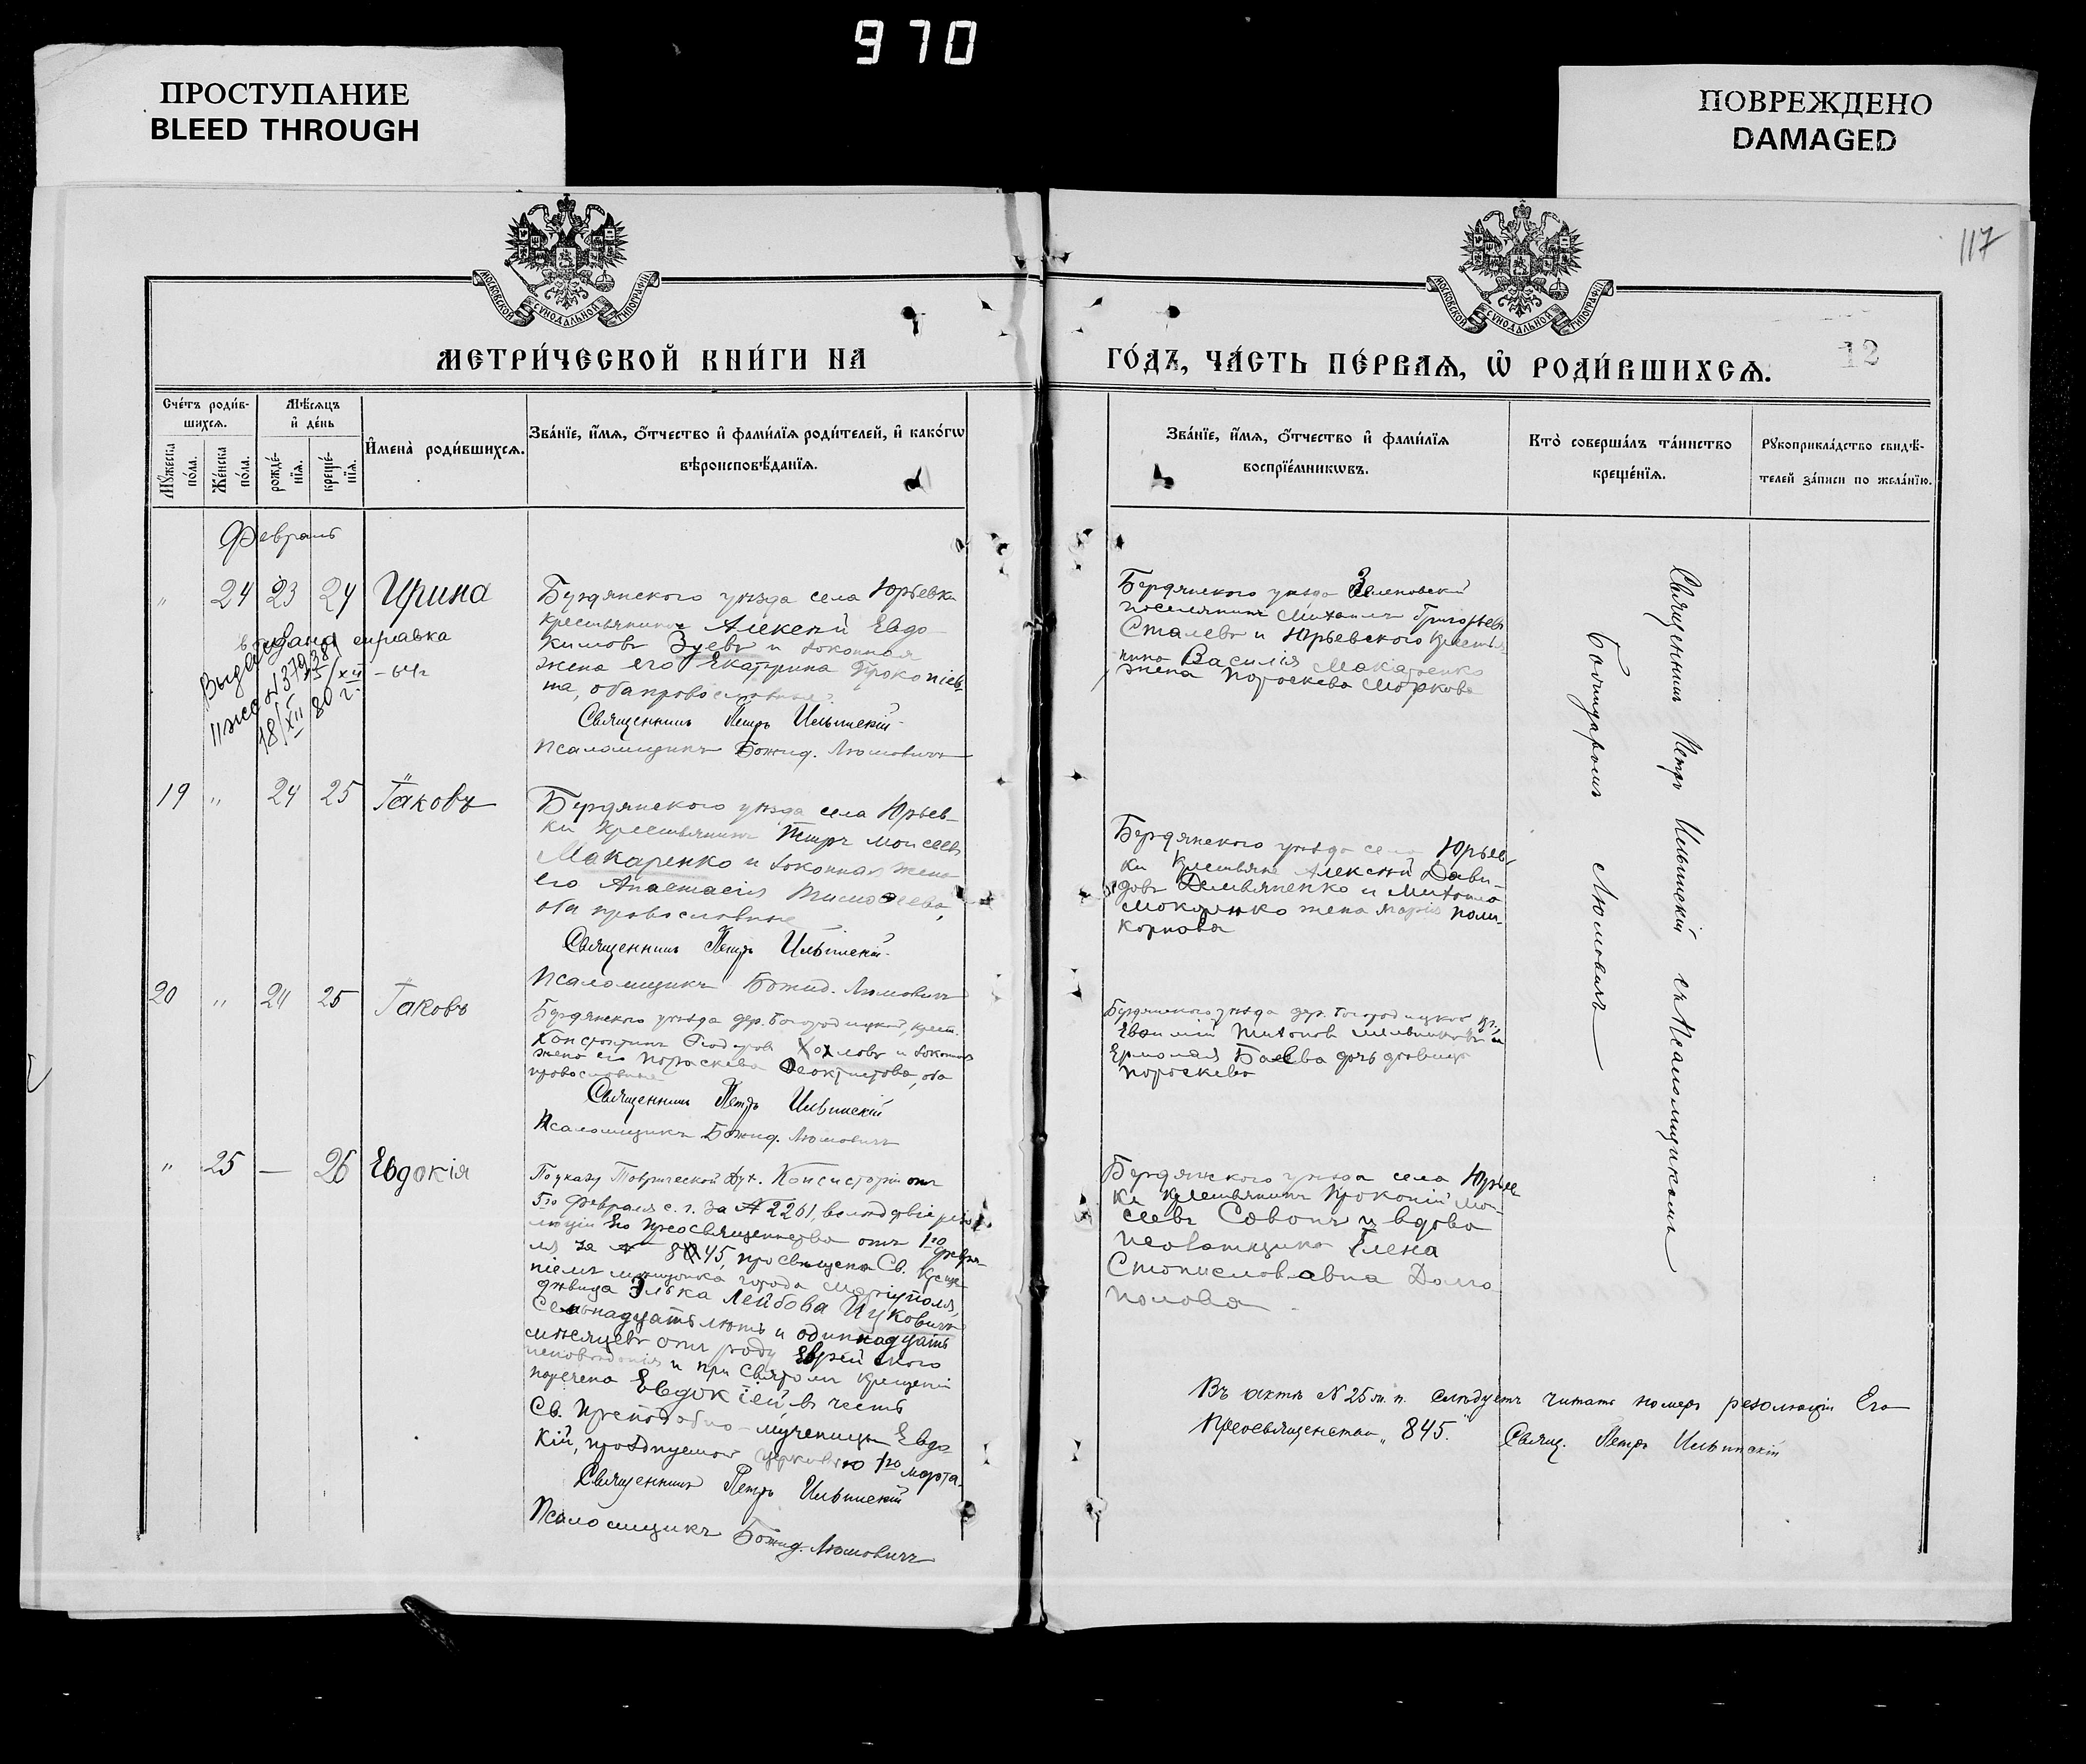 970
ПРОСТУПАНИЕ
BLEED THROUGH
ПОВРЕЖДЕНО
DAMAGED
117
МОСКОВСКОЙ СУНОДАЛЬНОЙ ТИПОГРАФІИ
МОСКОВСКОЙ СУНОДАЛЬНОЙ ТИПОГРАФІИ
МЕТРИ́ЧЕСКОЙ КНИ́ГИ НА
ГО́ДЪ, ЧА́СТЬ ПЕ́РВАѦ, Ѡ҆ РОДИ́ВШИХСѦ.
12
Сче́тъ роди́в-
шихсѧ.
Мѣ́сѧцъ
и҆ де́нь
Мꙋ́жеска
по́ла.
Же́нска
по́ла.
рожде́-
нїѧ.
креще́-
нїѧ.
И҆мена̀ роди́вшихсѧ.
Зва́нїе, и҆́мѧ, ѻ҆́тчество и҆ фами́лїѧ роди́телей, и҆ како́гѡ
вѣроисповѣ́данїѧ.
Зва́нїе, и҆́мѧ, ѻ҆́тчество и҆ фами́лїѧ
воспрїе́мникѡвъ.
Кто̀ соверша́лъ та́инство
креще́нїѧ.
Рꙋкоприкла́дство свидѣ́-
телей за́писи по жела́нїю.
Февраль
" 24 23 24 Ирина
Бердянского уѣзда села Юрьевки
крестьянинъ Алексѣй Евдо-
кимовъ Зуевъ и законная
жена его Екатерина Прокопіев-
на, оба православные
Священникъ Петръ Ильинскій
Псаломщикъ Божид. Люмовичъ
Бердянского уѣзда
поселянинъ Михаилъ Григорьевъ
Сталевъ и Юрьевского крестья
нина Василія Макаренко
жена Параскева Маркова
справка
/XII – 64г
18/XII 80 г.
19 " 24 25 Іаковъ
Бердянского уѣзда села Юрьев-
ки крестьянинъ Петръ Моисеевъ
Макаренко и законная жена
его Анастасія Тимоѳеева,
оба православные
Священникъ Петръ Ильинскій
Псаломщикъ Божид. Люмовичъ
Бердянского уѣзда села Юрьев-
ки крестьяне Алексѣй Дави-
довъ Демьяненко и Михаила
жена Марія Поли-
карпова
20 " 24 25 Іаковъ
Бердянского уѣзда дер. Богородицкой, крест.
Константинъ Ѳеодоровъ Хохловъ и законная
жена его Параскева Ѳеоктистова, оба
православные
Священникъ Петръ Ильинскій
Псаломщикъ Божид. Люмовичъ
Бердянского уѣзда дер. Богородицкой кр.
Евѳимій Тихоновъ
Ермолая Баева дочь дѣвица
Параскева
" 25 — 26 Евдокія
По указу Таврической Дух. Консисторіи отъ
5го Февраля с. г. за № 2261, вслѣдствіе резо-
люціи Его Преосвященства отъ 1го Февра-
ля за № 845, просвѣщена Св. Креще-
ніемъ мѣщанка города Маріуполя,
дѣвица Элька Лейбова Ицковичъ
семнадцать лѣтъ и одиннадцать
мѣсяцевъ отъ роду Еврейского
исповѣданія и при Святомъ крещеніи
наречена Евдокіей, въ честь
Св. Преподобно-мученицы Евдо-
кіи, празднуемой церковью 1го марта.
Священникъ Петръ Ильинскій
Псаломщикъ Божид. Люмовичъ
Бердянского уѣзда села Юрьев-
ки крестьянинъ Прокопій Мо-
сеевъ Савонъ и вдова
Елена
Станиславовна Долго
полова
Священникъ Петръ Ильинскій съ Псаломщикомъ
Божидаромъ Люмовичъ
Въ актѣ № 25 ж. п. слѣдуетъ читать номеръ резолюціи Его
Преосвященства „845." Свящ. Петръ Ильинскій